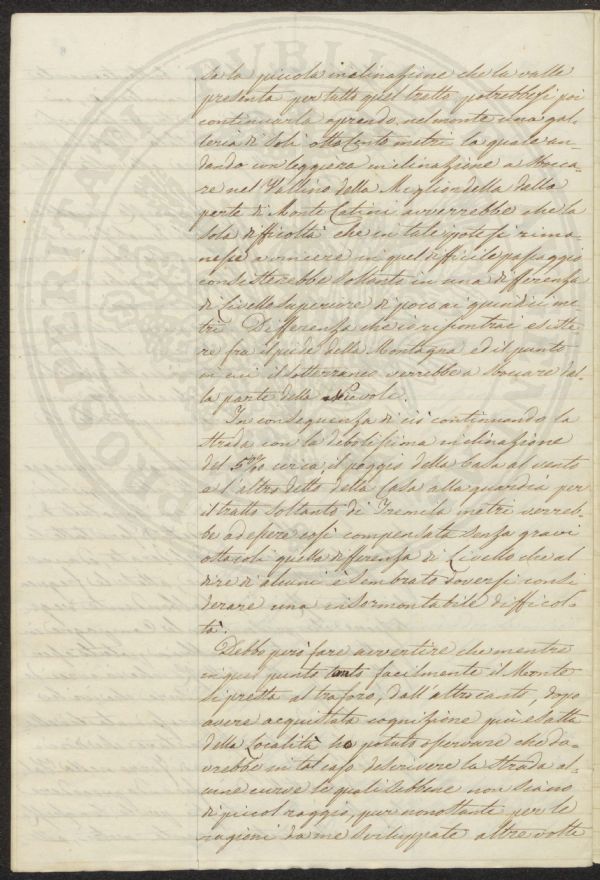 sa la piccola inclinazione che la valle
presenta per tutto quel tratto potrebbesi poi
continuarla aprendo nel monte una gal-
leria di soli ottocento metri la quale an-
dando con leggiera inclinazione a sbocca-
re nel Vallino della Magliondella dalla
parte di Monte Catini avverrebbe che la
sola difficoltà che in tale ipotesi rima-
nesse a vincere in quel difficile passaggio
consisterebbe soltanto in una differenza
di Livello superiore di poco ai quindici me
tri. Differenza che io riscontrai esiste
re fra il piede della Montagna ed il punto
in cui il sotterraneo verrebbe a sboccare al-
la parte della Nievole.
In conseguenza di ciò continuando la
strada con la debolissima inclinazione
del 5‰ circa, il poggio della Casa al vento
e l'altro detto della Casa alla guardia per
il tratto soltanto di Tremila metri verreb-
be ad essere così compensata senza gravi
ostacoli quella differenza di Livello che al
dire di alcuni è sembrato doversi consi
derare una insormontabile difficol-
tà.
Debbo però fare avvertire che mentre
in quel punto tanto facilmente il Monte
si presta al traforo, dall'altro canto, dopo
avere acquistata cognizione più esatta
della Località ho potuto osservare che do-
vrebbe in tal caso descrivere la strada al-
cune curve le quali sebbene non siano
di piccol raggio, pur nonostante per le
ragioni da me sviluppate altre volte
PROSPERITATI PUBLI